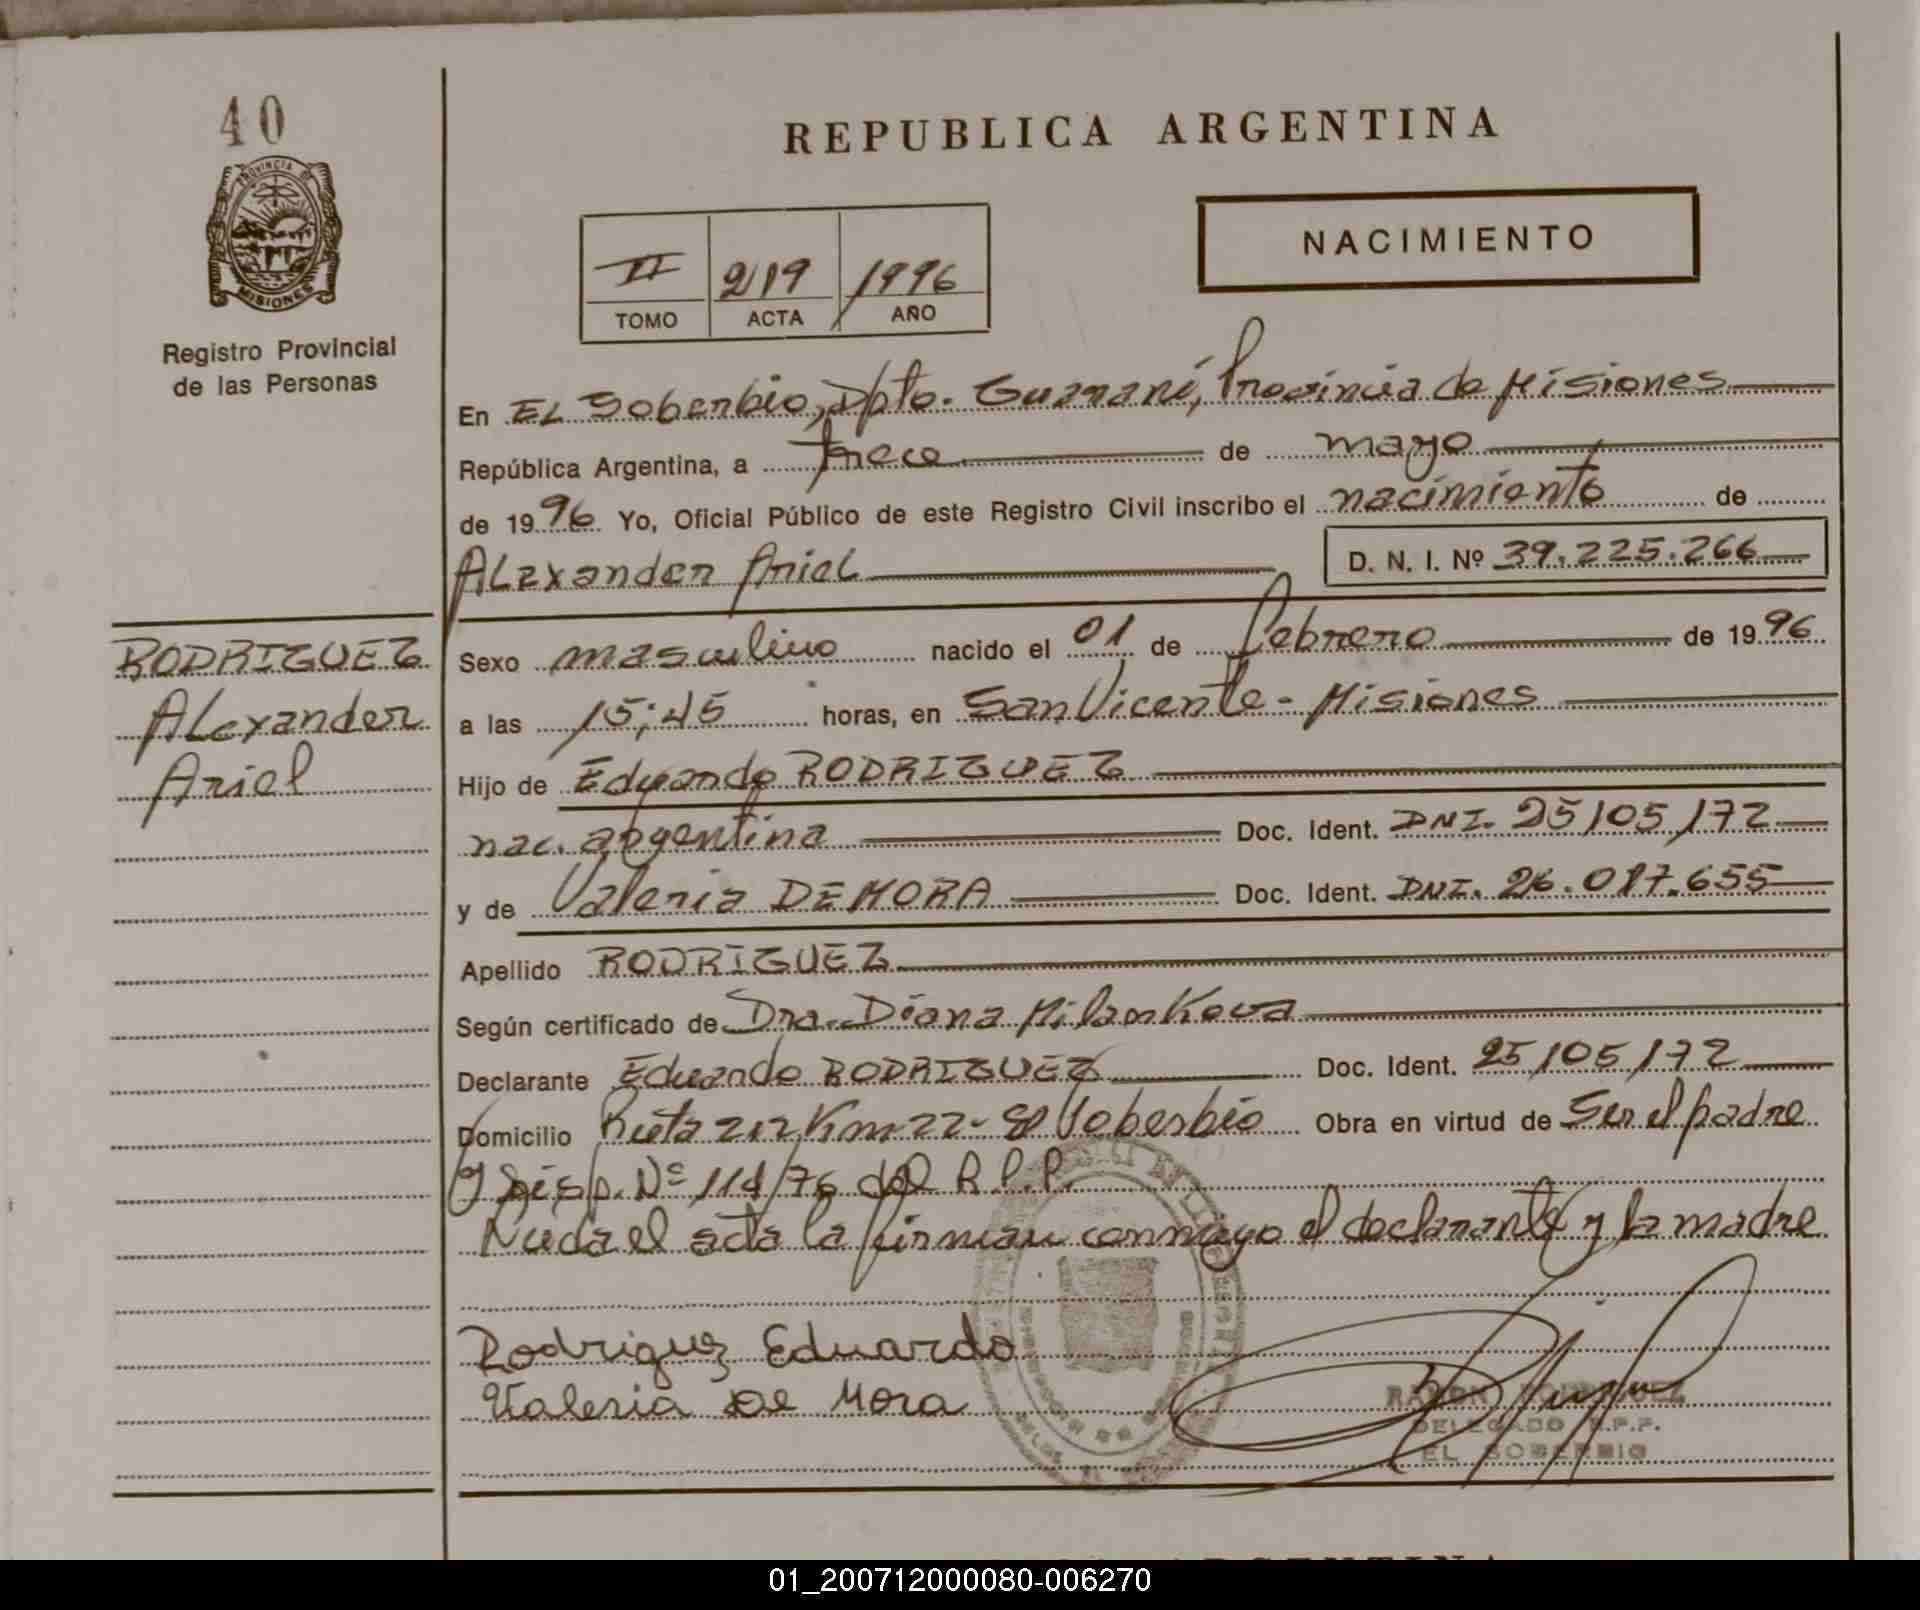 40
PROVINCIA DE
MISIONES
Registro Provincial
de las Personas
RODRIGUEZ
Alexander
Ariel
REPUBLICA ARGENTINA
NACIMIENTO
II 219 1996
TOMO ACTA AÑO
En EL Soberbio, Dpto. Guaraní, Provincia de Misiones
República Argentina, a trece de mayo
de 1996 Yo, Oficial Público de este Registro Civil inscribo el nacimiento de
Alexander Ariel D. N. I. Nº 39.225.266
Sexo masculino nacido el 01 de febrero de 1996
a las 15:45 horas, en San Vicente - Misiones
Hijo de Eduardo RODRIGUEZ
nac. argentina Doc. Ident. DNI. 25/05/72
y de Valeria DEMORA Doc. Ident. DNI. 26.017.655
Apellido RODRIGUEZ
Según certificado de Dra. Diana Milankova
Declarante Eduardo RODRIGUEZ Doc. Ident. 25/05/72
Domicilio Ruta 212 Km 22 - El Soberbio Obra en virtud de Ser el padre
y Disp. Nº 114/76 del R.P.P.
Leída el acta la firman conmigo el declarante y la madre
Rodriguez Eduardo
Valeria De Mora
RAMON RODRIGUEZ
DELEGADO R.P.P.
EL SOBERBIO
ARGENTINA
01_200712000080-006270